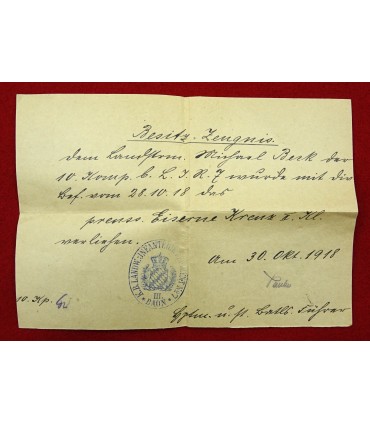 Besitz-Zeugnis.
Dem Landstrm. Michael Beck der
10. Komp. b. L. I. R. 7 wurde mit Div.
Bef. vom 28.10.18 das
preuss. Eiserne Kreuz 2. Kl.
verliehen.
Am 30. Okt. 1918
K.B. LANDW. INFANTERIE
III.
BAON
10. Kp.
Hptm. u. st. Batls. Führer